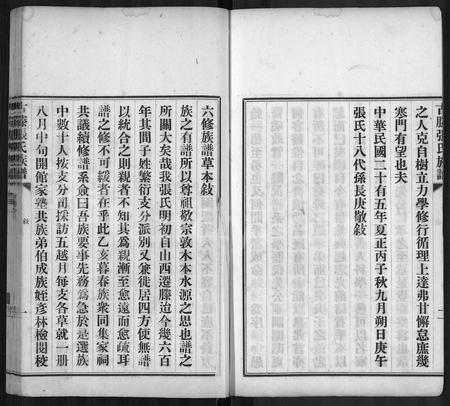 古滕張氏族譜
之人克自樹立力學修行循理上達弗甘懈怠庶幾
寒門有望也夫
中華民國二十有五年夏正丙子秋九月朔日庚午
張氏十八代孫長庚敬敍
六修族譜草本敍
族之有譜所以尊祖敬宗敦木本水源之思也譜之
所關大矣哉我張氏明初自山西遷滕迨今幾六百
年其間子姓繁衍支分派別又兼徙居四方便無譜
以統合之則親者不知其爲親漸至愈遠而愈疏耳
譜之修不可緩者在乎此乙亥暮春族衆同集家祠
共議續修譜系僉曰吾族要事先務爲急於是選族
中數十人按支分司採訪五越月每支各草就一册
八月中旬開館家塾共族弟伯成族姪彦林檢閱校
古滕張氏族譜
敍
一